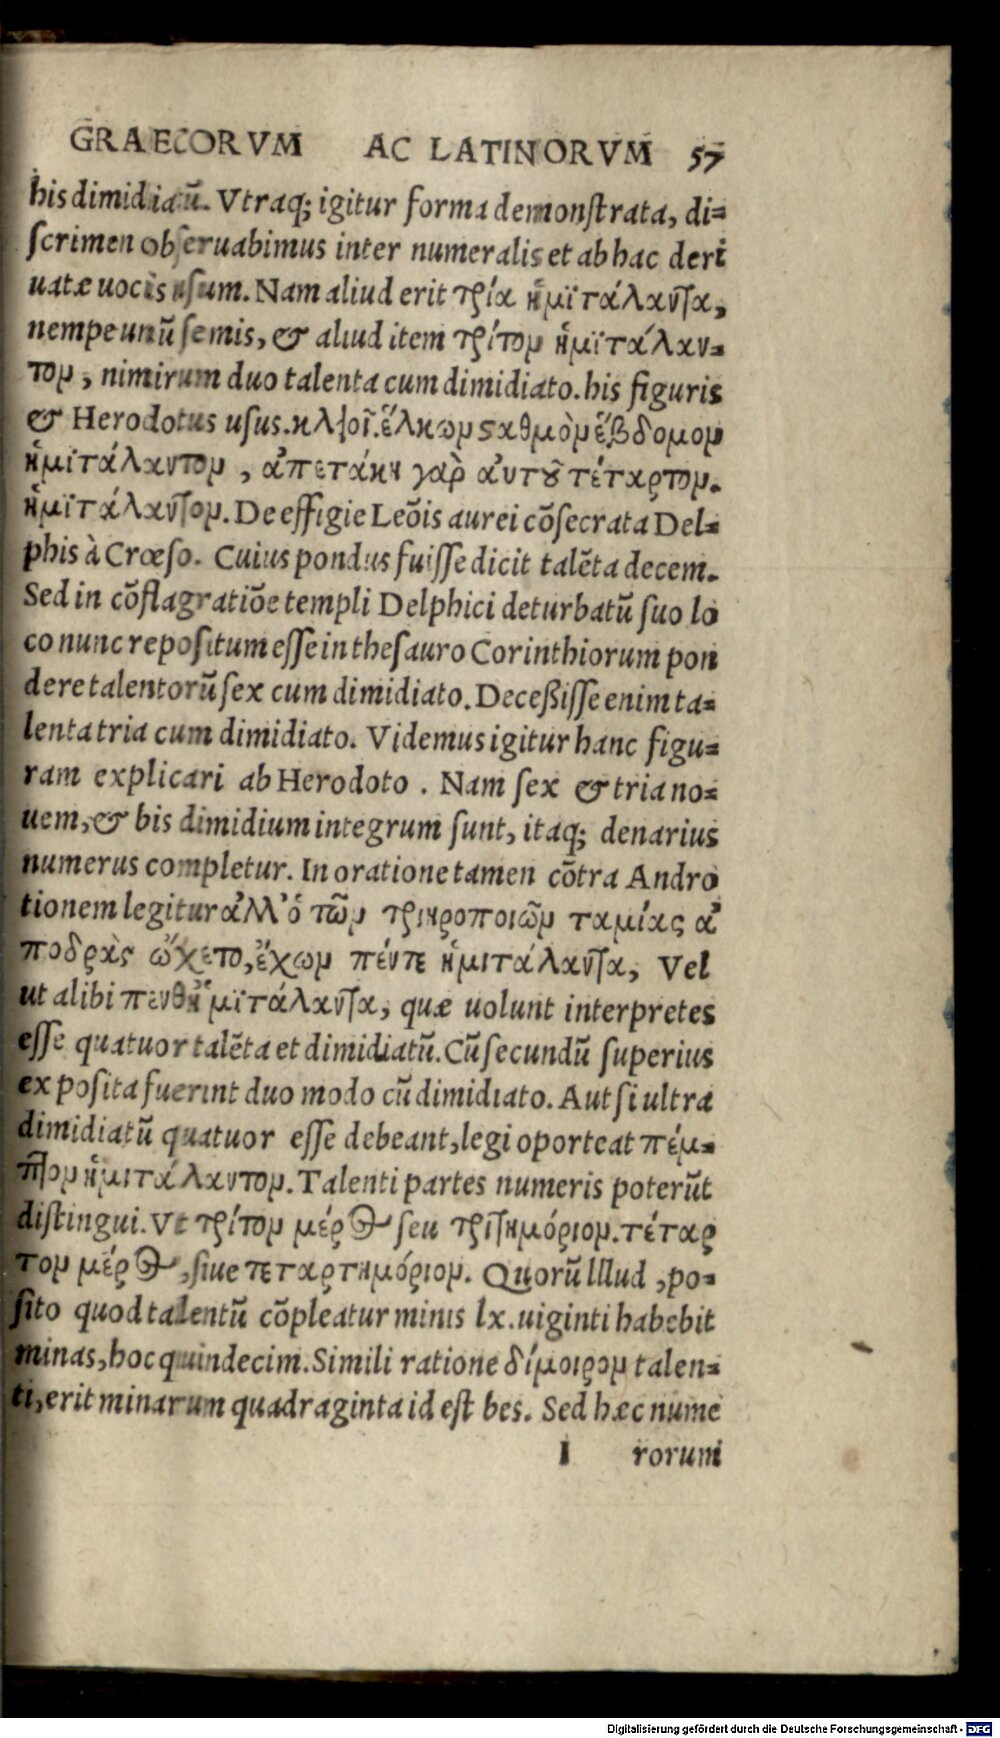 GRAECORVM AC LATINORVM 57
his dimidiatū. Vtraq; igitur forma demonstrata, di=
scrimen obseruabimus inter numeralis et ab hac deri
uatæ uocis usum. Nam aliud erit τρία ἡμϊτάλαντα,
nempe unū semis, & aliud item τρίτον ἡμϊτάλαν=
τον, nimirum duo talenta cum dimidiato. his figuris
& Herodotus usus. κλϊοῖ. ἕλκων σαθμὸν ἕβδομον
ἡμϊτάλαντον, ἀπετάκη γὰρ ἀυτοῦ τέταρτον.
ἡμϊτάλαντον. De effigie Leōis aurei cōsecrata Del=
phis à Crœso. Cuius pondus fuisse dicit talēta decem.
Sed in cōflagratiōe templi Delphici deturbatū suo lo
co nunc repositum esse in thesauro Corinthiorum pon
dere talentorū sex cum dimidiato. Deceßisse enim ta=
lenta tria cum dimidiato. Videmus igitur hanc figu=
ram explicari ab Herodoto. Nam sex & tria no=
uem, & bis dimidium integrum sunt, itaq; denarius
numerus completur. In oratione tamen cōtra Andro
tionem legitur ἀλλ' ὁ τῶν τριηροποιῶν ταμίας ἀ
ποδρὰς ᾤχετο, ἔχων πέντε ἡμιτάλαντα, Vel
ut alibi πενθἡμϊτάλαντα, quæ uolunt interpretes
esse quatuor talēta et dimidiatū. Cū secundū superius
exposita fuerint duo modo cū dimidiato. Aut si ultra
dimidiatū quatuor esse debeant, legi oporteat πέμ=
πτον ἡμιτάλαντον. Talenti partes numeris poterūt
distingui. Vt τρίτον μέρος seu τριτημόριον. τέταρ
τον μέρος, siue τεταρτημόριον. Quorū Illud, po=
sito quod talentū cōpleatur minis lx. uiginti habebit
minas, hoc quindecim. Simili ratione δίμοιρον talen=
ti, erit minarum quadraginta id est bes. Sed hæc nume
I rorum
Digitalisierung gefördert durch die Deutsche Forschungsgemeinschaft - DFG